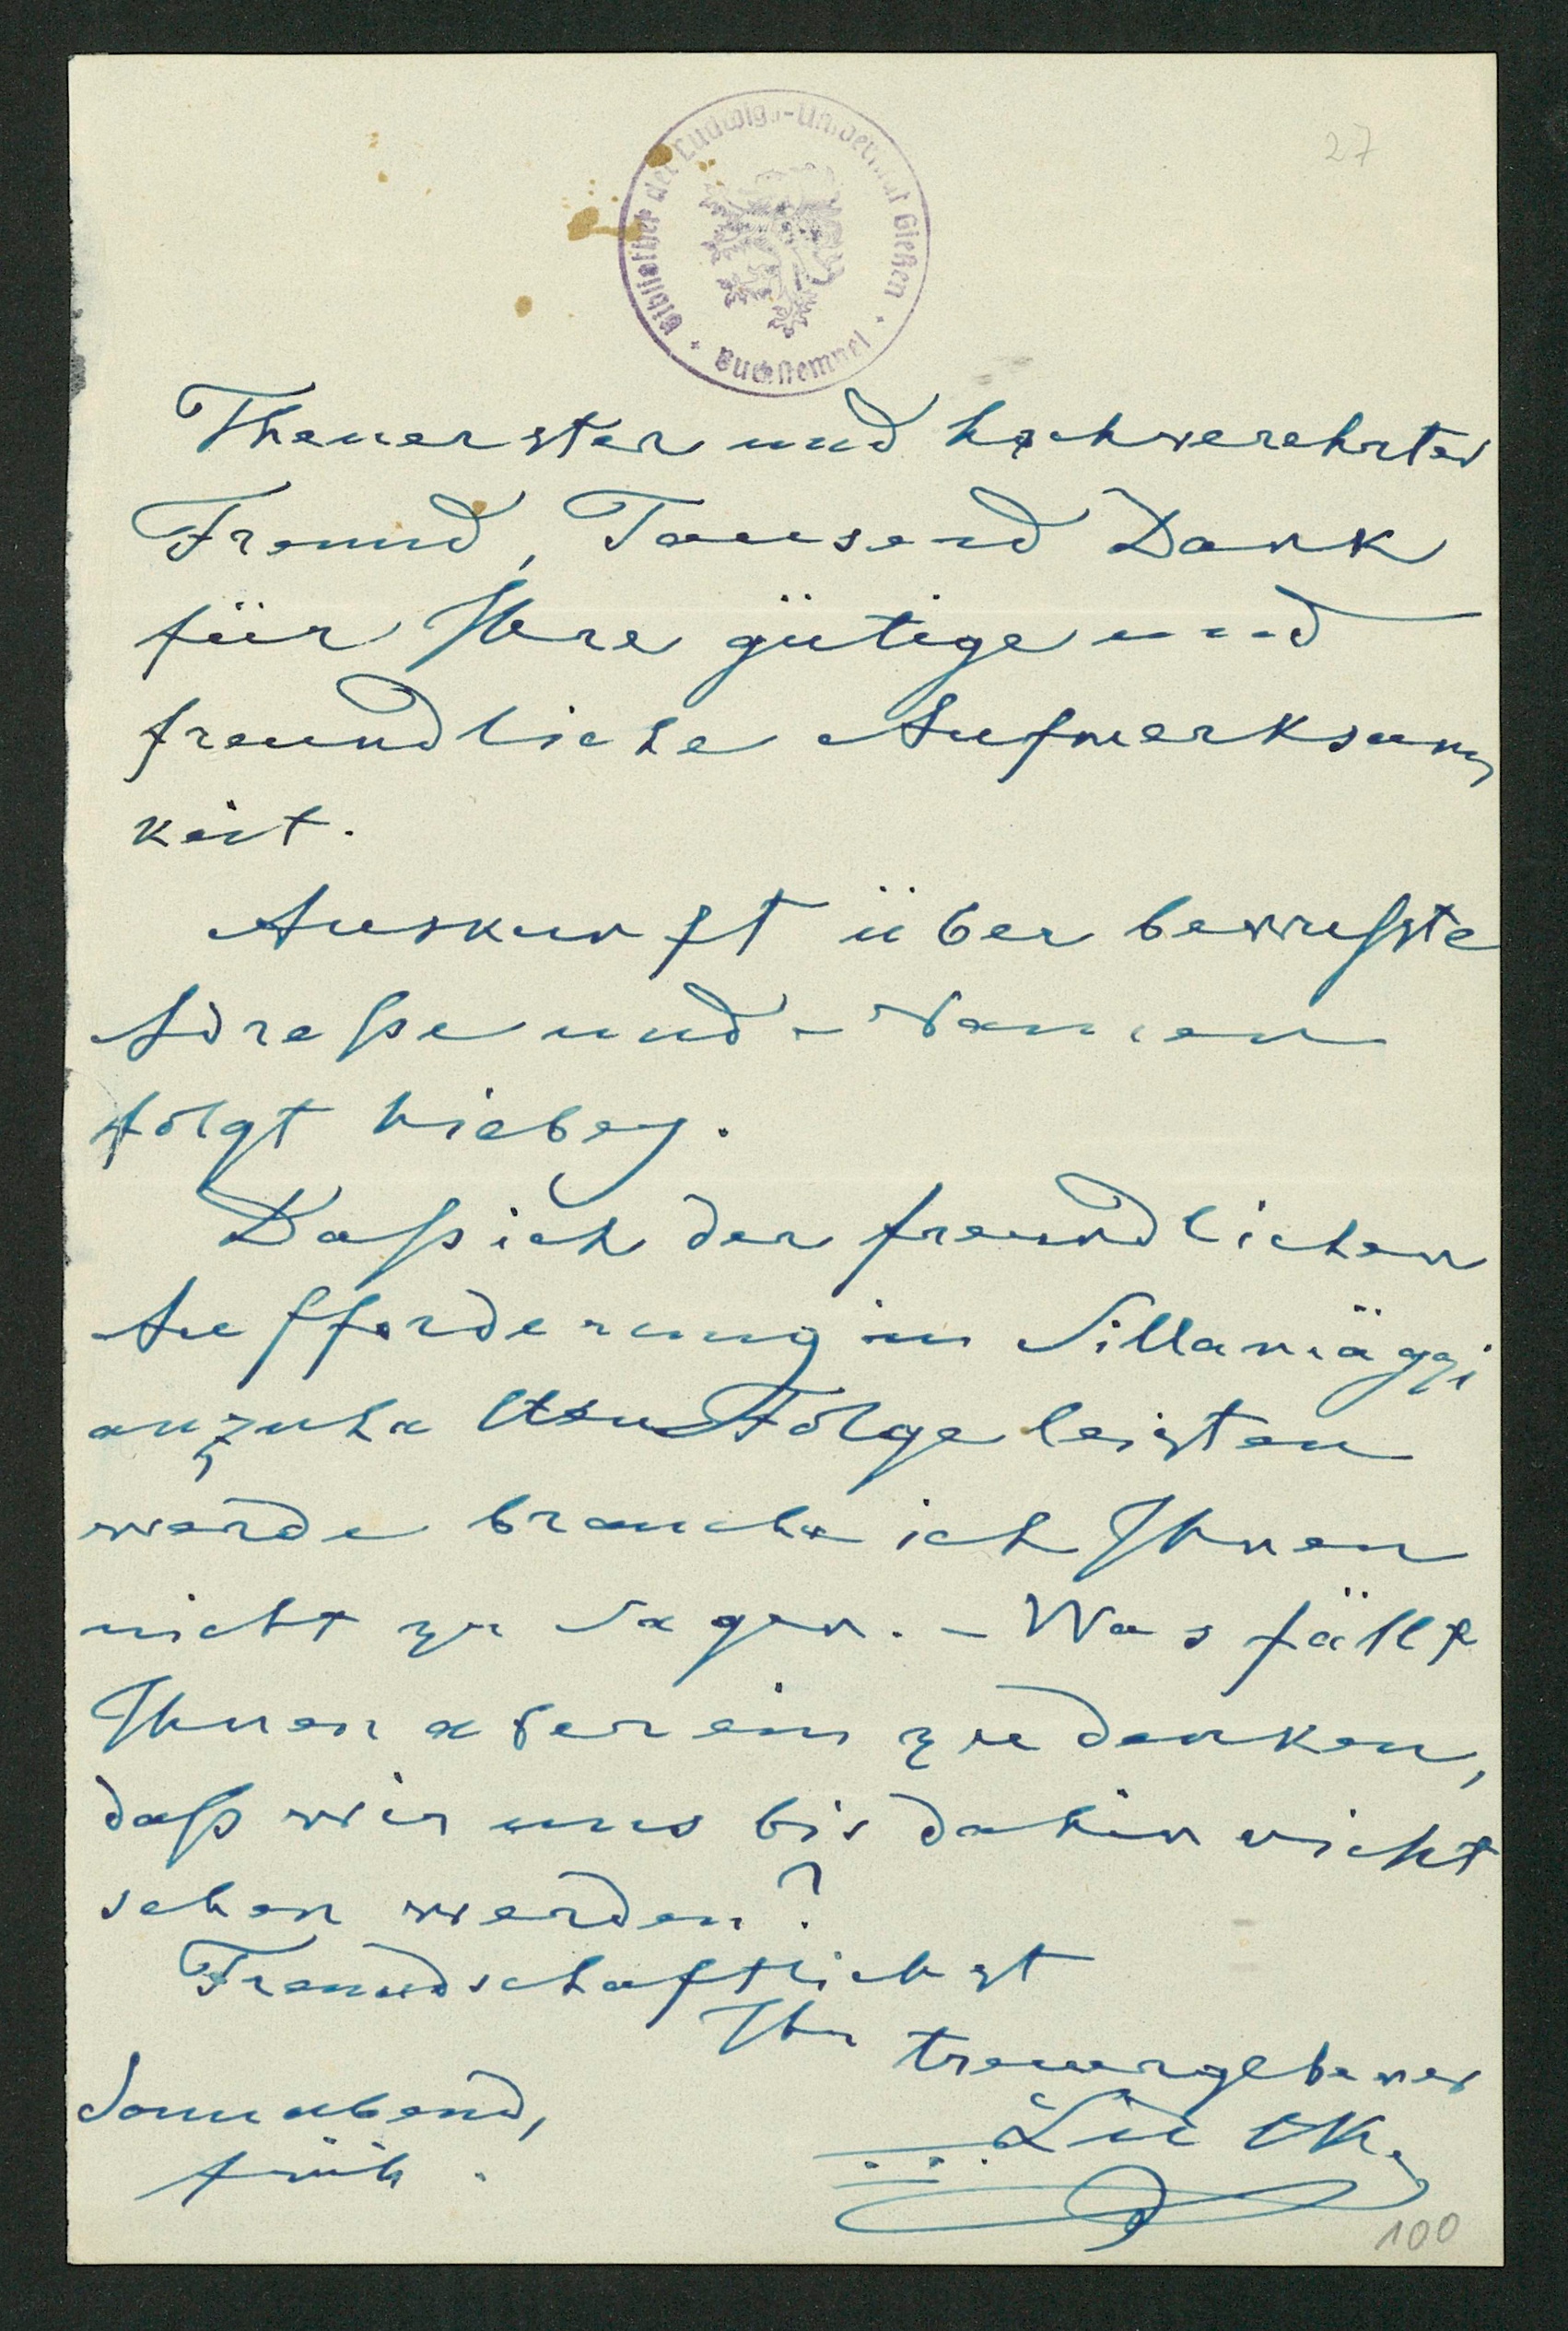 27
Bibliothek der Ludwigs-Universität Gießen
Buchstempel
Theuerster und hochverehrter
Freund, Tausend Dank
für Ihre gütige und
freundliche Aufmerksam
keit.
Auskunft über bewußte
Adreße und - Namen
folgt hiebey.
Daß ich der freundlichen
Aufforderung in Sillamäggi
anzuhalten Folge leisten
werde brauche ich Ihnen
nicht zu sagen. - Was fällt
Ihnen aber ein zu denken,
daß wir uns bis dahin nicht
sehen werden?
Freundschaftlichst
Ihr treuergebener
Sonnabend,
früh.
100